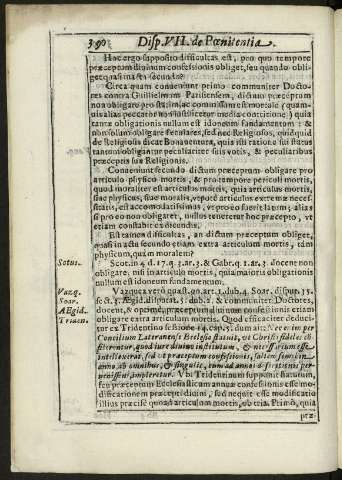 390 Disp. VII. de Pœnitentia.
Hoc ergo supposito difficultas est, pro quo tempore
præceptum divinum confessionis obliget, seu quando obli-
get quasi in actu secundo?
Circa quam conveniunt primo communiter Docto-
res contra Guillielmum Parisiensem, dictum præceptum
non obligare pro statim, ac commissum est mortale (quam-
vis alias peccator non iustificetur media contritione:) quia
tantæ obligationis nullum est idoneum fundamentum: &
non solum obligare sæculares, sed nec Religiosos, quidquid
de Religiosis dicat Bonaventura, quia isti ratione sui status
tantum obligantur peculiariter suis votis, & peculiaribus
præceptis suæ Religionis.
Conveniunt secundo dictum præceptum obligare pro
articulo physico mortis, & pro tempore periculi mortis,
quod moraliter est articulus mortis, quia articulus mortis,
sive physicus, sive moralis, utpotè articulus extremæ necessi-
tatis, est accommodatissimus, ut pro eo serviet lavum; alias
si pro eo non obligaret, nullus teneretur hoc præcepto, ut
etiam constabit ex dicendis.
Est tamen difficultas, an dictum præceptum obliget,
quasi in actu secundo etiam extra articulum mortis, tàm
physicum, quàm moralem?
Sotus. Scot. in 4. d. 17. q. 1. ar. 3. & Gabr. q. 1. ar. 3. docent non
obligare nisi in articulo mortis, quia maioris obligationis
nullum est idoneum fundamentum.
Vazq. Vazquez verò quæst. 90. art. 1. dub. 4. Soar. disput. 35.
Soar. sect. 5. Ægid. disputat. 5. dub. 2. & communiter Doctores,
Ægid. docent, & optimè, præceptum divinum confessionis obligare etiam
Trident. extra articulum mortis. Quod efficaciter deduci-
tur ex Tridentino sessione 14. cap. 5. dum ait: Nec enim per
Concilium Lateranense Ecclesia statuit, ut Christi fideles con-
fiterentur, quod iure divino institutum, & necessarium esse
intellexerat, sed ut præceptum confessionis, saltem semel in
anno, ab omnibus, & singulis, cum ad annos discretionis per-
venissent impleretur. Ubi Tridentinum supponit statutum,
seu præceptum Ecclesiasticum annuæ confessionis esse mo-
dificationem præcepti divini, sed non esset modificatio
illius præcise quoad articulum mortis, ob tria. Primò, quia
præ-